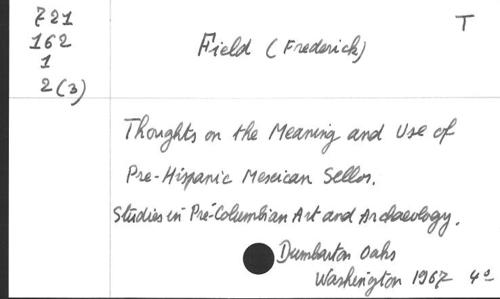 721
162
1
2(3)
T
Field (Frederick)
Thoughts on the Meaning and Use of
Pre-Hispanic Mexican Sellos.
Studies in Pre-Columbian Art and Archaeology.
Dumbarton Oaks
Washington 1967 4º